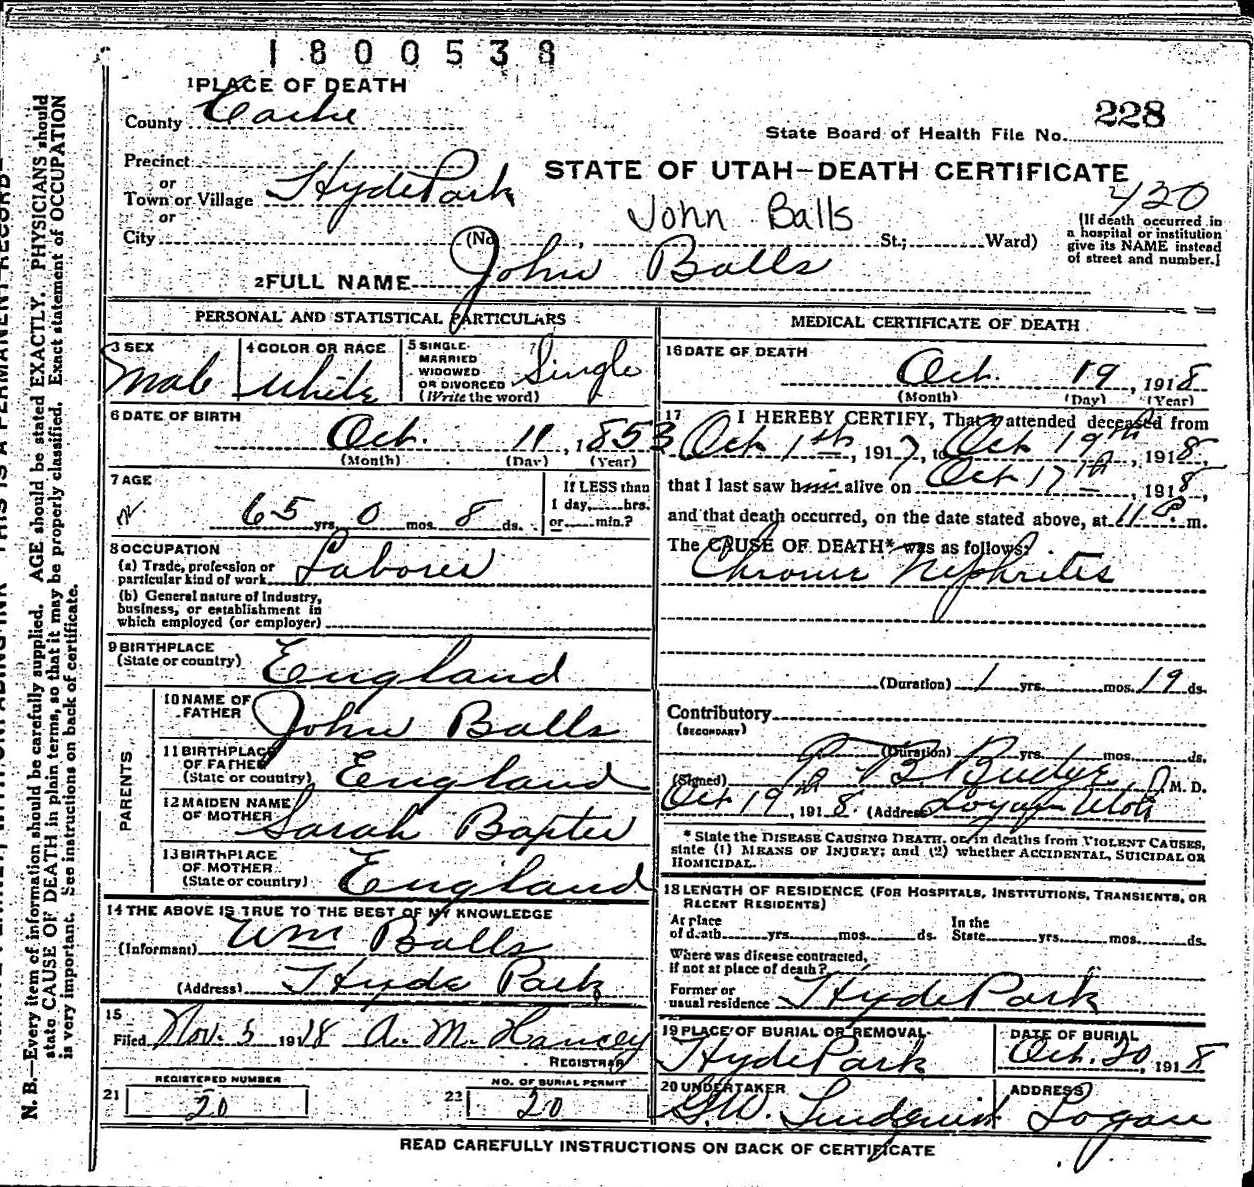 1800538
1 PLACE OF DEATH
County Cache
228
State Board of Health File No.
Precinct
or
Town or Village Hyde Park
or
STATE OF UTAH—DEATH CERTIFICATE
430
John Balls
City (No. , St.; Ward)
(If death occurred in
a hospital or institution
give its NAME instead
of street and number.)
2 FULL NAME John Balls
PERSONAL AND STATISTICAL PARTICULARS
3 SEX Male
4 COLOR OR RACE White
5 SINGLE
MARRIED
WIDOWED
OR DIVORCED
(Write the word) Single
6 DATE OF BIRTH
Oct. 11, 1853
(Month) (Day) (Year)
7 AGE
65 yrs. 0 mos. 8 ds.
If LESS than
1 day, hrs.
or min.?
8 OCCUPATION
(a) Trade, profession or
particular kind of work Laborer
(b) General nature of Industry,
business, or establishment in
which employed (or employer)
9 BIRTHPLACE
(State or country) England
PARENTS
10 NAME OF
FATHER John Balls
11 BIRTHPLACE
OF FATHER
(State or country) England
12 MAIDEN NAME
OF MOTHER Sarah Baxter
13 BIRTHPLACE
OF MOTHER
(State or country) England
14 THE ABOVE IS TRUE TO THE BEST OF MY KNOWLEDGE
(Informant) Wm Balls
(Address) Hyde Park
15
Filed Nov. 5 1918 A. M. Hancey
REGISTRAR
REGISTERED NUMBER
21 20
NO. OF BURIAL PERMIT
22 20
MEDICAL CERTIFICATE OF DEATH
16 DATE OF DEATH
Oct. 19, 1918
(Month) (Day) (Year)
17 I HEREBY CERTIFY, That I attended deceased from
Oct 1st, 1917, to Oct 19th, 1918,
that I last saw him alive on Oct 17th, 1918,
and that death occurred, on the date stated above, at 11 P. m.
The CAUSE OF DEATH* was as follows:
Chronic Nephrites
(Duration) 1 yrs. mos. 19 ds.
Contributory
(SECONDARY)
(Duration) yrs. mos. ds.
(Signed) Budge M. D.
Oct 19th, 1918. (Address) Logan Utah
* State the DISEASE CAUSING DEATH, or, in deaths from VIOLENT CAUSES,
state (1) MEANS OF INJURY; and (2) whether ACCIDENTAL, SUICIDAL OR
HOMICIDAL.
18 LENGTH OF RESIDENCE (FOR HOSPITALS, INSTITUTIONS, TRANSIENTS, OR
RECENT RESIDENTS)
At place
of death yrs. mos. ds.
In the
State yrs. mos. ds.
Where was disease contracted,
if not at place of death?
Former or
usual residence Hyde Park
19 PLACE OF BURIAL OR REMOVAL
Hyde Park
DATE OF BURIAL
Oct. 20, 1918
20 UNDERTAKER
G.W.
ADDRESS
Logan
READ CAREFULLY INSTRUCTIONS ON BACK OF CERTIFICATE
N. B.—Every item of information should be carefully supplied. AGE should be stated EXACTLY. PHYSICIANS should
state CAUSE OF DEATH in plain terms, so that it may be properly classified. Exact statement of OCCUPATION
is very important. See instructions on back of certificate.